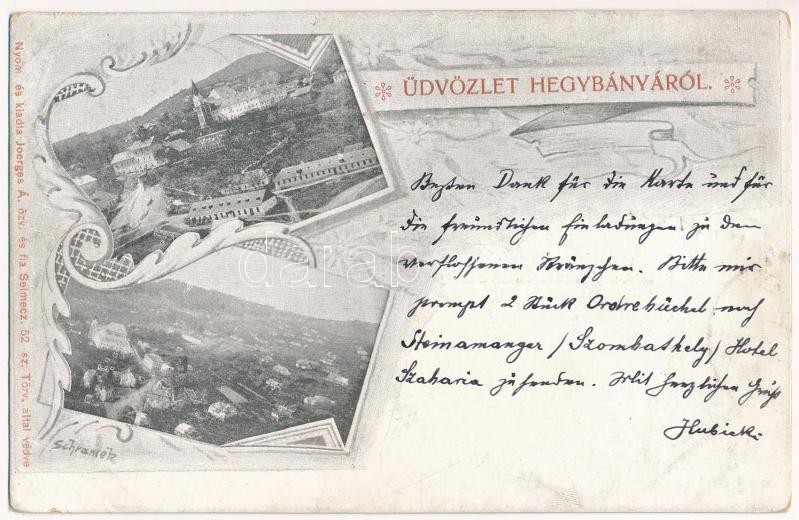 ÜDVÖZLET HEGYBÁNYÁRÓL.
Besten Dank für die Karte und für
die freundlichen Einladungen zu dem
verflossenen Kränzchen. Bitte mir
prompt 2 Stück Ordrebüchel nach
Steinamanger /Szombathely/ Hotel
Szaharia zu senden. Mit herzlichen Gruß
Hubicki
Schramek
Nyom. és kiadja Joerges Á. özv. és fia Selmecz. 52 sz. Törv. által védve
darabanth